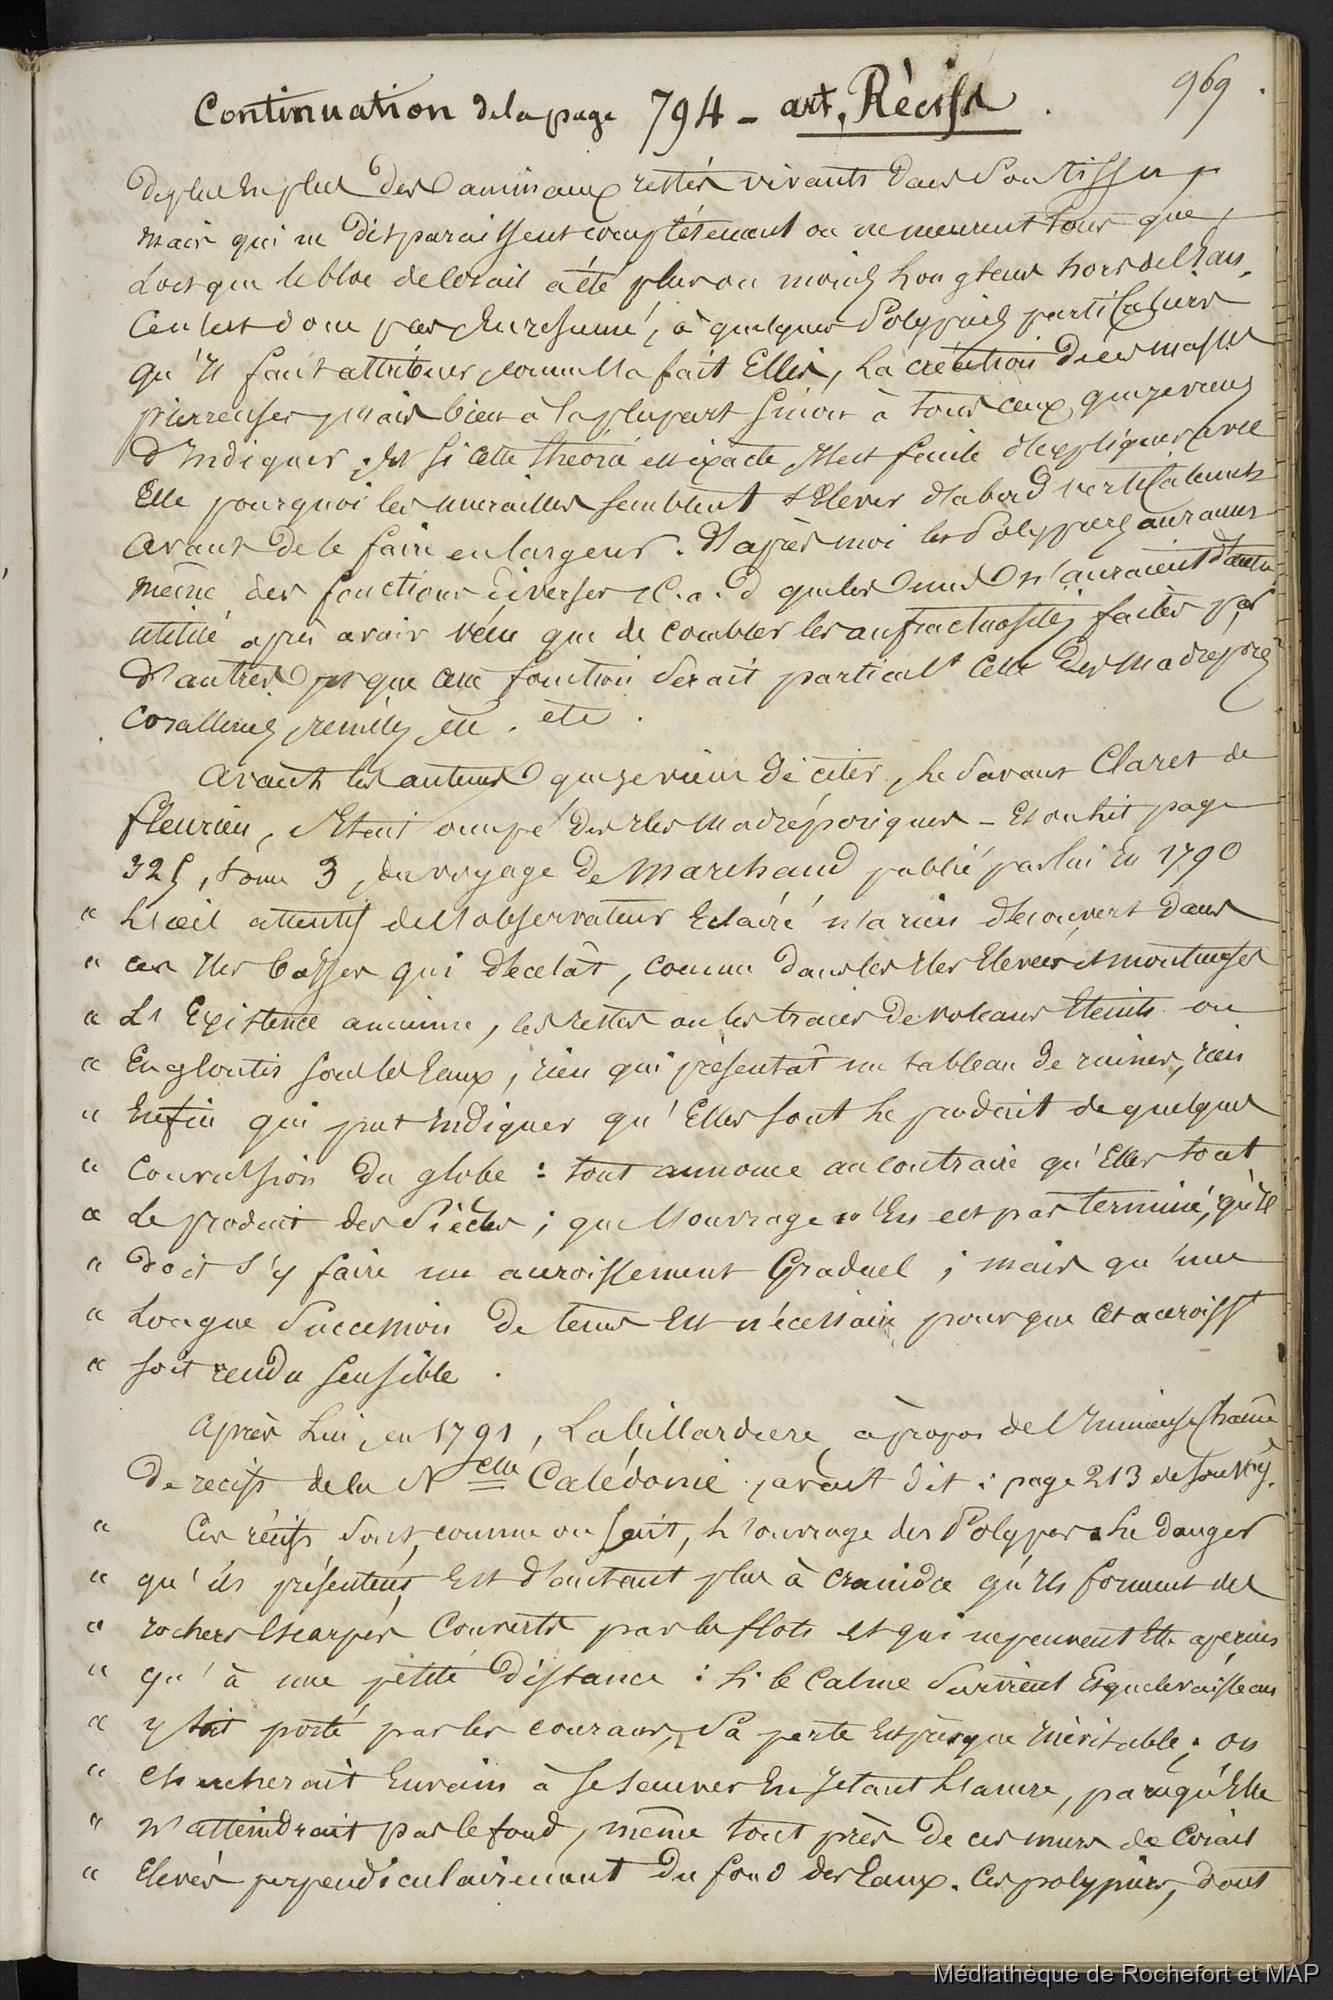 969.
Continuation de la page 794 - art. Récifs.
de plus en plus des animaux restés vivants dans son tissu,
mais qui ne disparaissent complétement ou ne meurent tous que
lorsque le bloc de corail a été plus ou moins longtems hors de l'eau.
Ce n'est donc pas, en resumé, à quelques Polypiers particuliers
qu'il faut attribuer, comme l'a fait Ellis, la création de ces masses
pierreuses, mais bien à la plupart sinon à tous ceux que je viens
d'indiquer. Et si cette théorie est exacte, il est facile d'expliquer avec
Elle pourquoi les murailles semblent s'Elever d'abord verticalement
avant de le faire en largeur. D'après moi les Polypiers auraient
même des fonctions diverses C.a.d que les uns n'auraient d'autre
utilité après avoir vécu que de combler les anfractuosités faites par
d'autres, et que cette fonction serait particult celle des Madrépores
Corallines, etc. etc.
Avant les auteurs que je viens de citer, le savant Claret de
fleurieu, s'Etait occupé des Iles Madréporiques - Et on lit page
325, tome 3, du voyage de Marchand publié par lui En 1790
" L'œil attentif de l'observateur Eclairé n'a rien découvert dans
" ces Iles basses qui décelât, comme dans les Iles Elevées et montueuses
" L'Existence ancienne, les restes ou les traces de volcans Eteints ou
" Engloutis sous les Eaux, rien qui présentât un tableau de ruines, rien
" Enfin qui put indiquer qu'Elles sont le produit de quelque
" Convulsion du globe : tout annonce au contraire qu'Elles sont
" Le produit des Siècles ; que l'ouvrage n'En est pas terminé, qu'il
" doit s'y faire un accroissement Graduel ; mais qu'une
" Longue Succession de tems Est nécessaire pour que Cet accroisst
" soit rendu sensible.
Après Lui, en 1791, Labillardiere, à propos de l'Immense Chaine
De recifs de la Nelle Calédonie, avait dit : page 213 de son Voy.
" Ces récifs sont, comme on sait, L'ouvrage des Polypes. Le danger
" qu'ils présentent, Est d'autant plus à craindre qu'Ils forment des
" rochers Escarpés Couverts par les flots et qui ne peuvent Etre aperçus
" qu'à une petite distance : si le Calme Survient Et que le vaisseau
" y soit porté par les courans, Sa perte Est presque Inévitable ; on
" chercherait Envain à se sauver En Jetant L'ancre, parcequ'Elle
" N'atteindrait pas le fond, même tout près de ces murs de Corail
" Elevés perpendiculairement du fond des Eaux. Ces polypiers, dont
Médiathèque de Rochefort et MAP